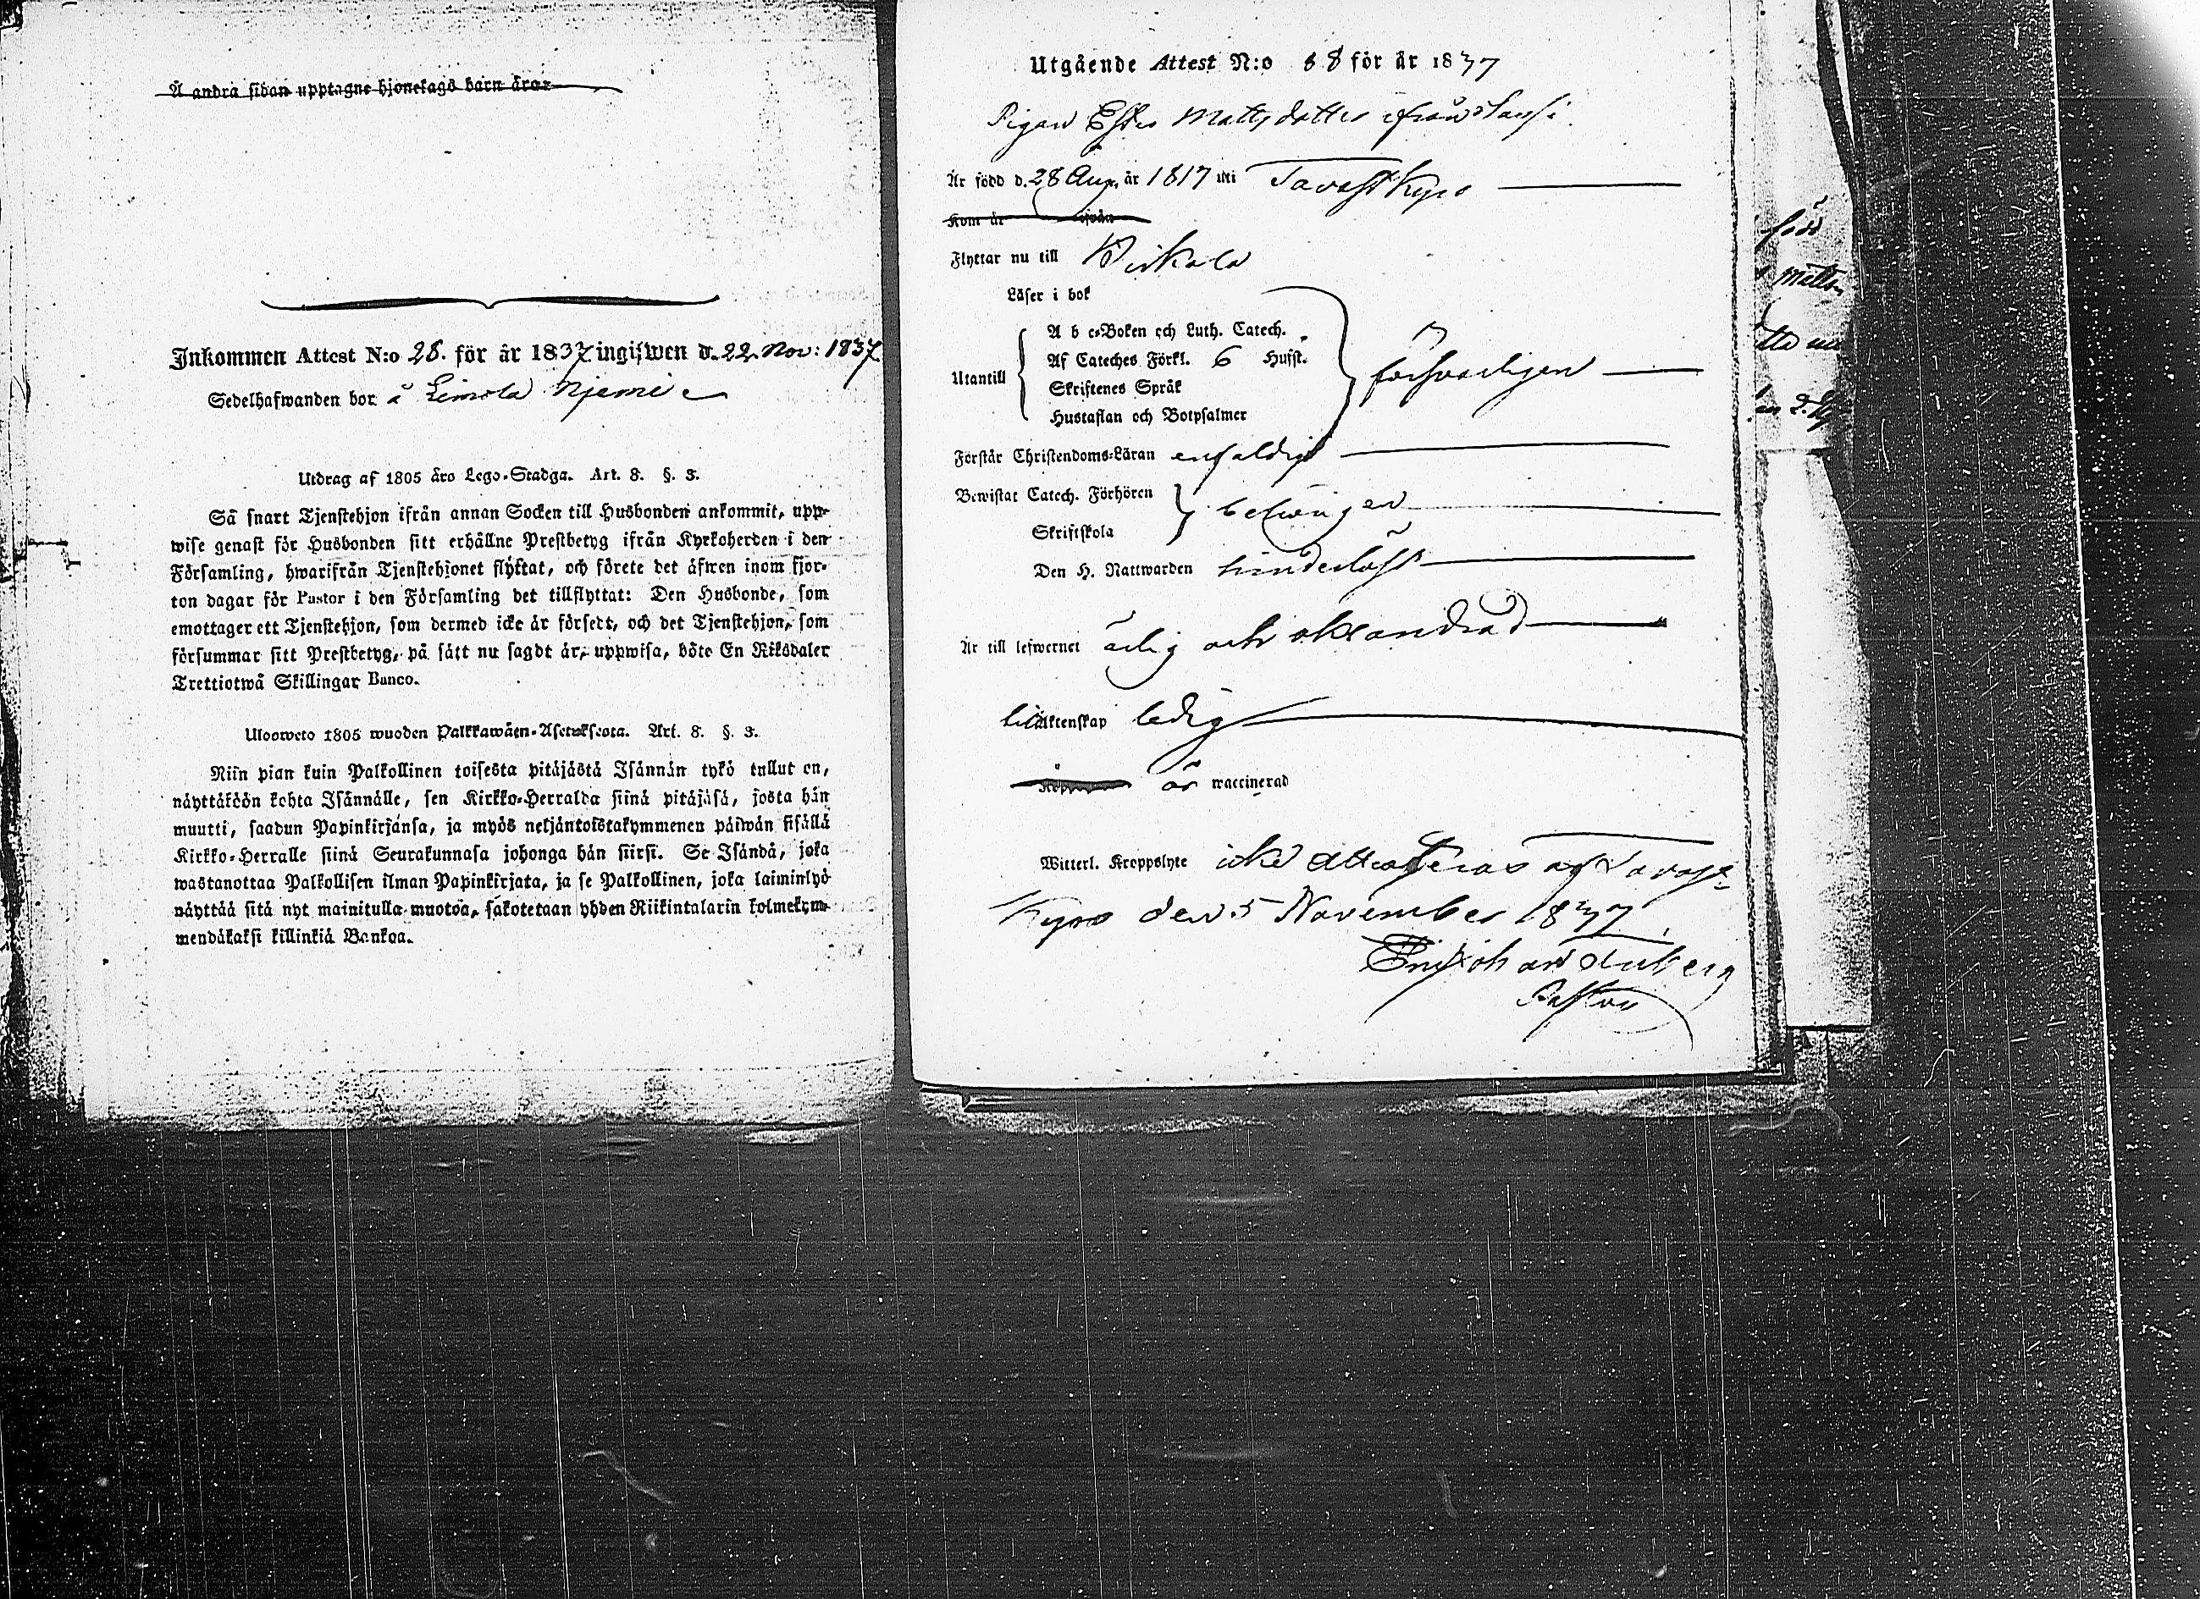 Å andra sidan upptagne hjonelags barn äro:
Inkommen Attest N:o 28. för år 1837 ingifwen d. 22. Nov: 1837.
Sedelhafwanden bor å Leinola Njemi
Utdrag af 1805 års Lego-Stadga. Art. 8. §. 3.
Så snart Tjenstehjon ifrån annan Socken till Husbonden ankommit, upp-
wise genast för Husbonden sitt erhållne Prestbetyg ifrån Kyrkoherden i den
Församling, hwarifrån Tjenstehjonet flyttat, och förete det äfwen inom fjor-
ton dagar för Pastor i den Församling det tillflyttat: Den Husbonde, som
emottager ett Tjenstehjon, som dermed icke är försedt, och det Tjenstehjon, som
försummar sitt Prestbetyg, på sätt nu sagdt är, uppwisa, böte En Riksdaler
Trettiotwå Skillingar Banco.
Uloosweto 1805 wuoden Palkkawäen-Asetuksesta. Art. 8. §. 3.
Niin pian kuin Palkollinen toisesta pitäjästä Isännän tykö tullut on,
näyttäköön kohta Isännälle, sen Kirkko-Herralda siinä pitäjäsä, josta hän
muutti, saadun Papinkirjansa, ja myös neljäntoistakymmenen päiwän sisällä
Kirkko-Herralle siinä Seurakunnasa johonga hän siirsi. Se Isändä, joka
wastanottaa Palkollisen ilman Papinkirjata, ja se Palkollinen, joka laiminlyö
näyttää sitä nyt mainitulla muotoa, sakotetaan yhden Riikintalarin kolmekym-
mendäkaksi killinkiä Bankoa.
Utgående Attest N:o 88 för år 1837
Pigan Ester Mattsdotter ifrån
Är född d. 28 Aug. år 1817 uti Tavastkyro
Kom år ifrån
Flyttar nu till Birkala
Läser i bok
A b c-Boken och Luth. Catech.
Utantill Af Cateches Förkl. 6 Hufst. försvarligen
Skriftenes Språk
Hustaflan och Botpsalmer
Förstår Christendoms-Läran enfaldigt
Bewistat Catech. Förhören
Skriftskola
Den H. Nattwarden hinderlöst
Är till lefwernet ärlig och oklandrad
till äktenskap ledig
är waccinerad
Witterl. Kroppslyte icke attesteras af Tavast-
Kyro den 5 November 1837.
Pastor
född